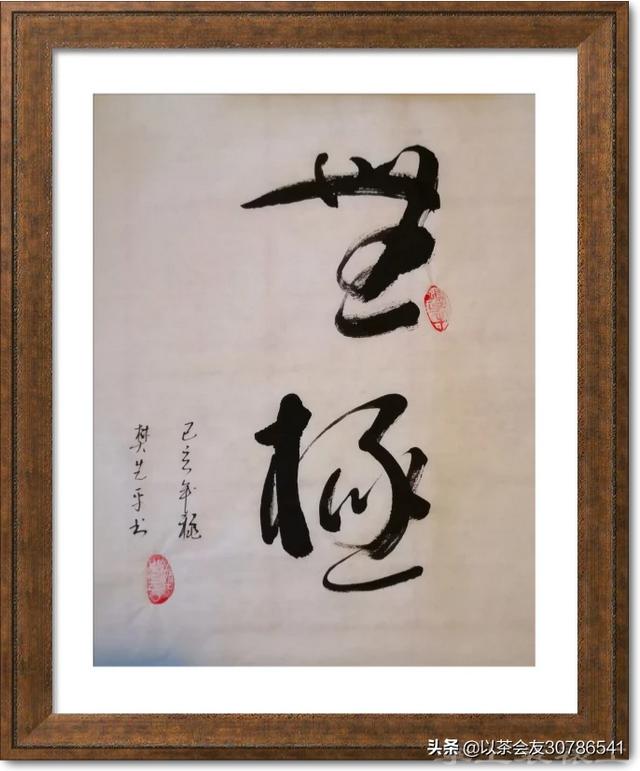 無極
己亥年秋
樊先平书
头条 @以茶会友30786541